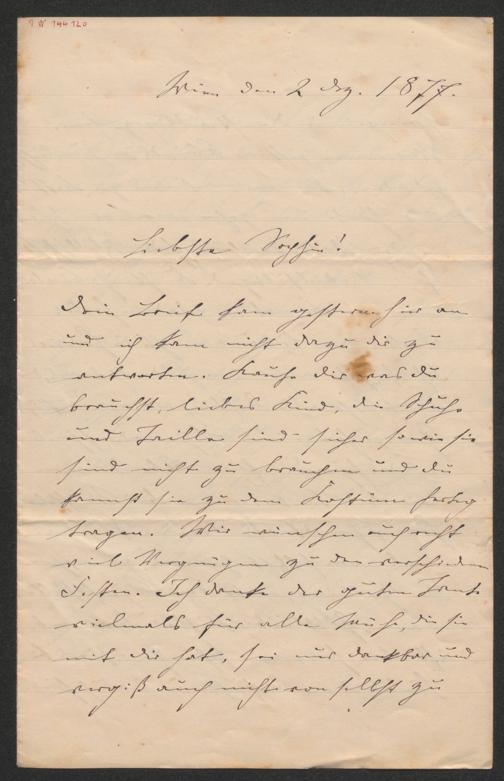 I N 144120
Wien den 2 Dez. 1877.
Liebste Sophie!
Dein Brief kam gestern hier an
und ich kam nicht dazu dir zu
antworten. Kaufe dir was du
brauchst, liebes Kind, die Schuhe
und Taille sind sicher so wie sie
sind nicht zu brauchen und du
kannst sie zu dem Kostüm
tragen. Wir wünschen euch recht
viel Vergnügen zu den verschieden
Festen. Ich danke der guten Tante
vielmals für alle Mühe, die sie
mit dir hat, sei nur dankbar und
vergiß auch nicht von selbst zu